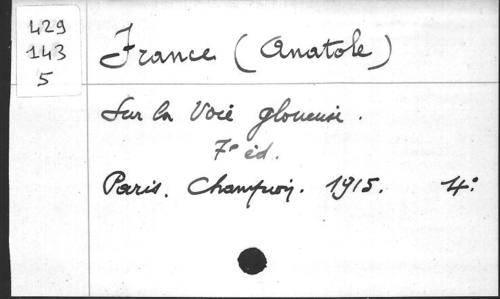 429
143
5
France (Anatole)
Sur la Voie glorieuse.
7e éd.
Paris. Champion. 1915. 4º